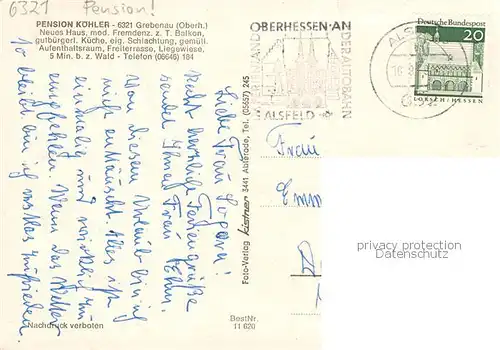 6321 Pension!
PENSION KÖHLER - 6321 Grebenau (Oberh.)
Neues Haus, mod. Fremdenz. z. T. Balkon,
gutbürgerl. Küche, eig. Schlachtung, gemütl.
Aufenthaltsraum, Freiterrasse, Liegewiese.
5 Min. b. z. Wald - Telefon (06646) 184
Liebe Frau
Recht herzliche Feriengrüße
sendet Ihnen Frau
Von diesem Urlaub bin ich
nicht enttäuscht. Alles ist
einmalig und wirklich zu
empfehlen. Wenn das Wetter
so bleibt, bin ich restlos zufrieden
Nachdruck verboten
Foto-Verlag Kistner 3441 Abterode, Tel. (05657) 245
BestNr.
11 620
FERIENLAND
OBERHESSEN·AN
DER AUTOBAHN
ALSFELD
ALS
Deutsche Bundespost
20
LORSCH/HESSEN
Frau
Emm
privacy protection
Datenschutz